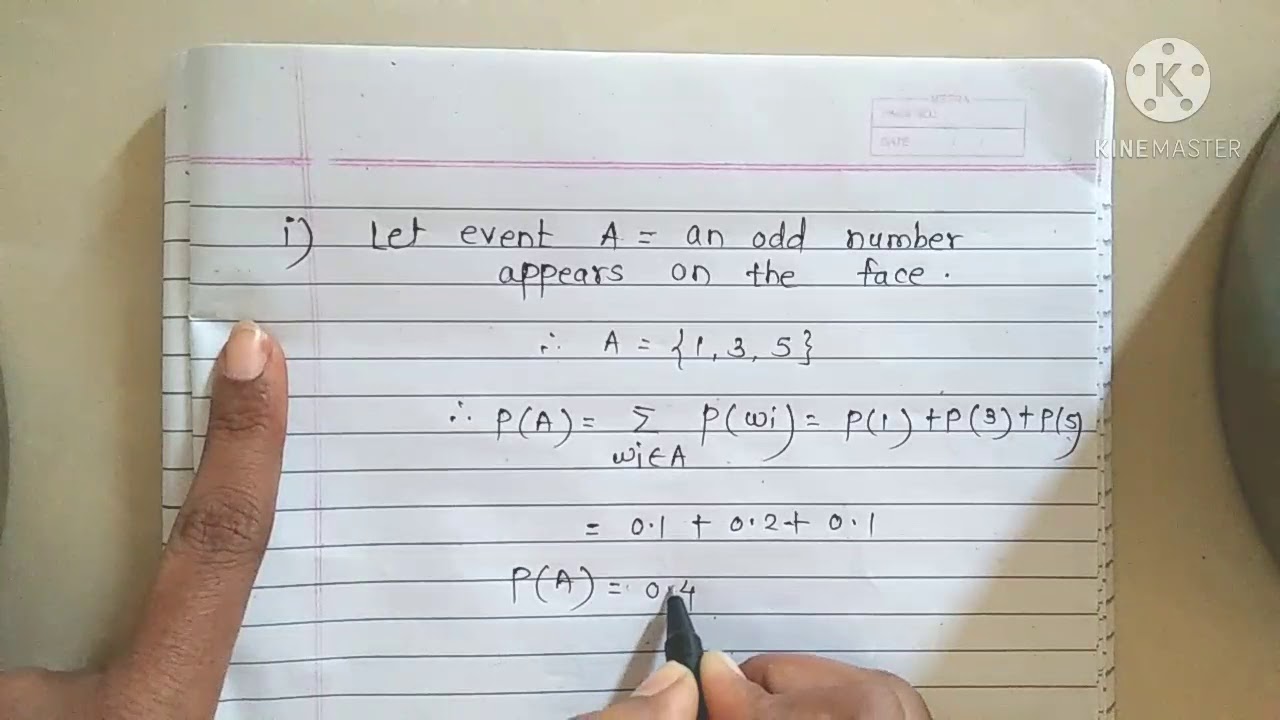 K
KINEMASTER
DATE
i) Let event A = an odd number
appears on the face.
∴ A = {1, 3, 5}
∴ P(A) = Σ P(ωi) = P(1) + P(3) + P(5)
ωi∈A
= 0.1 + 0.2 + 0.1
P(A) = 0.4